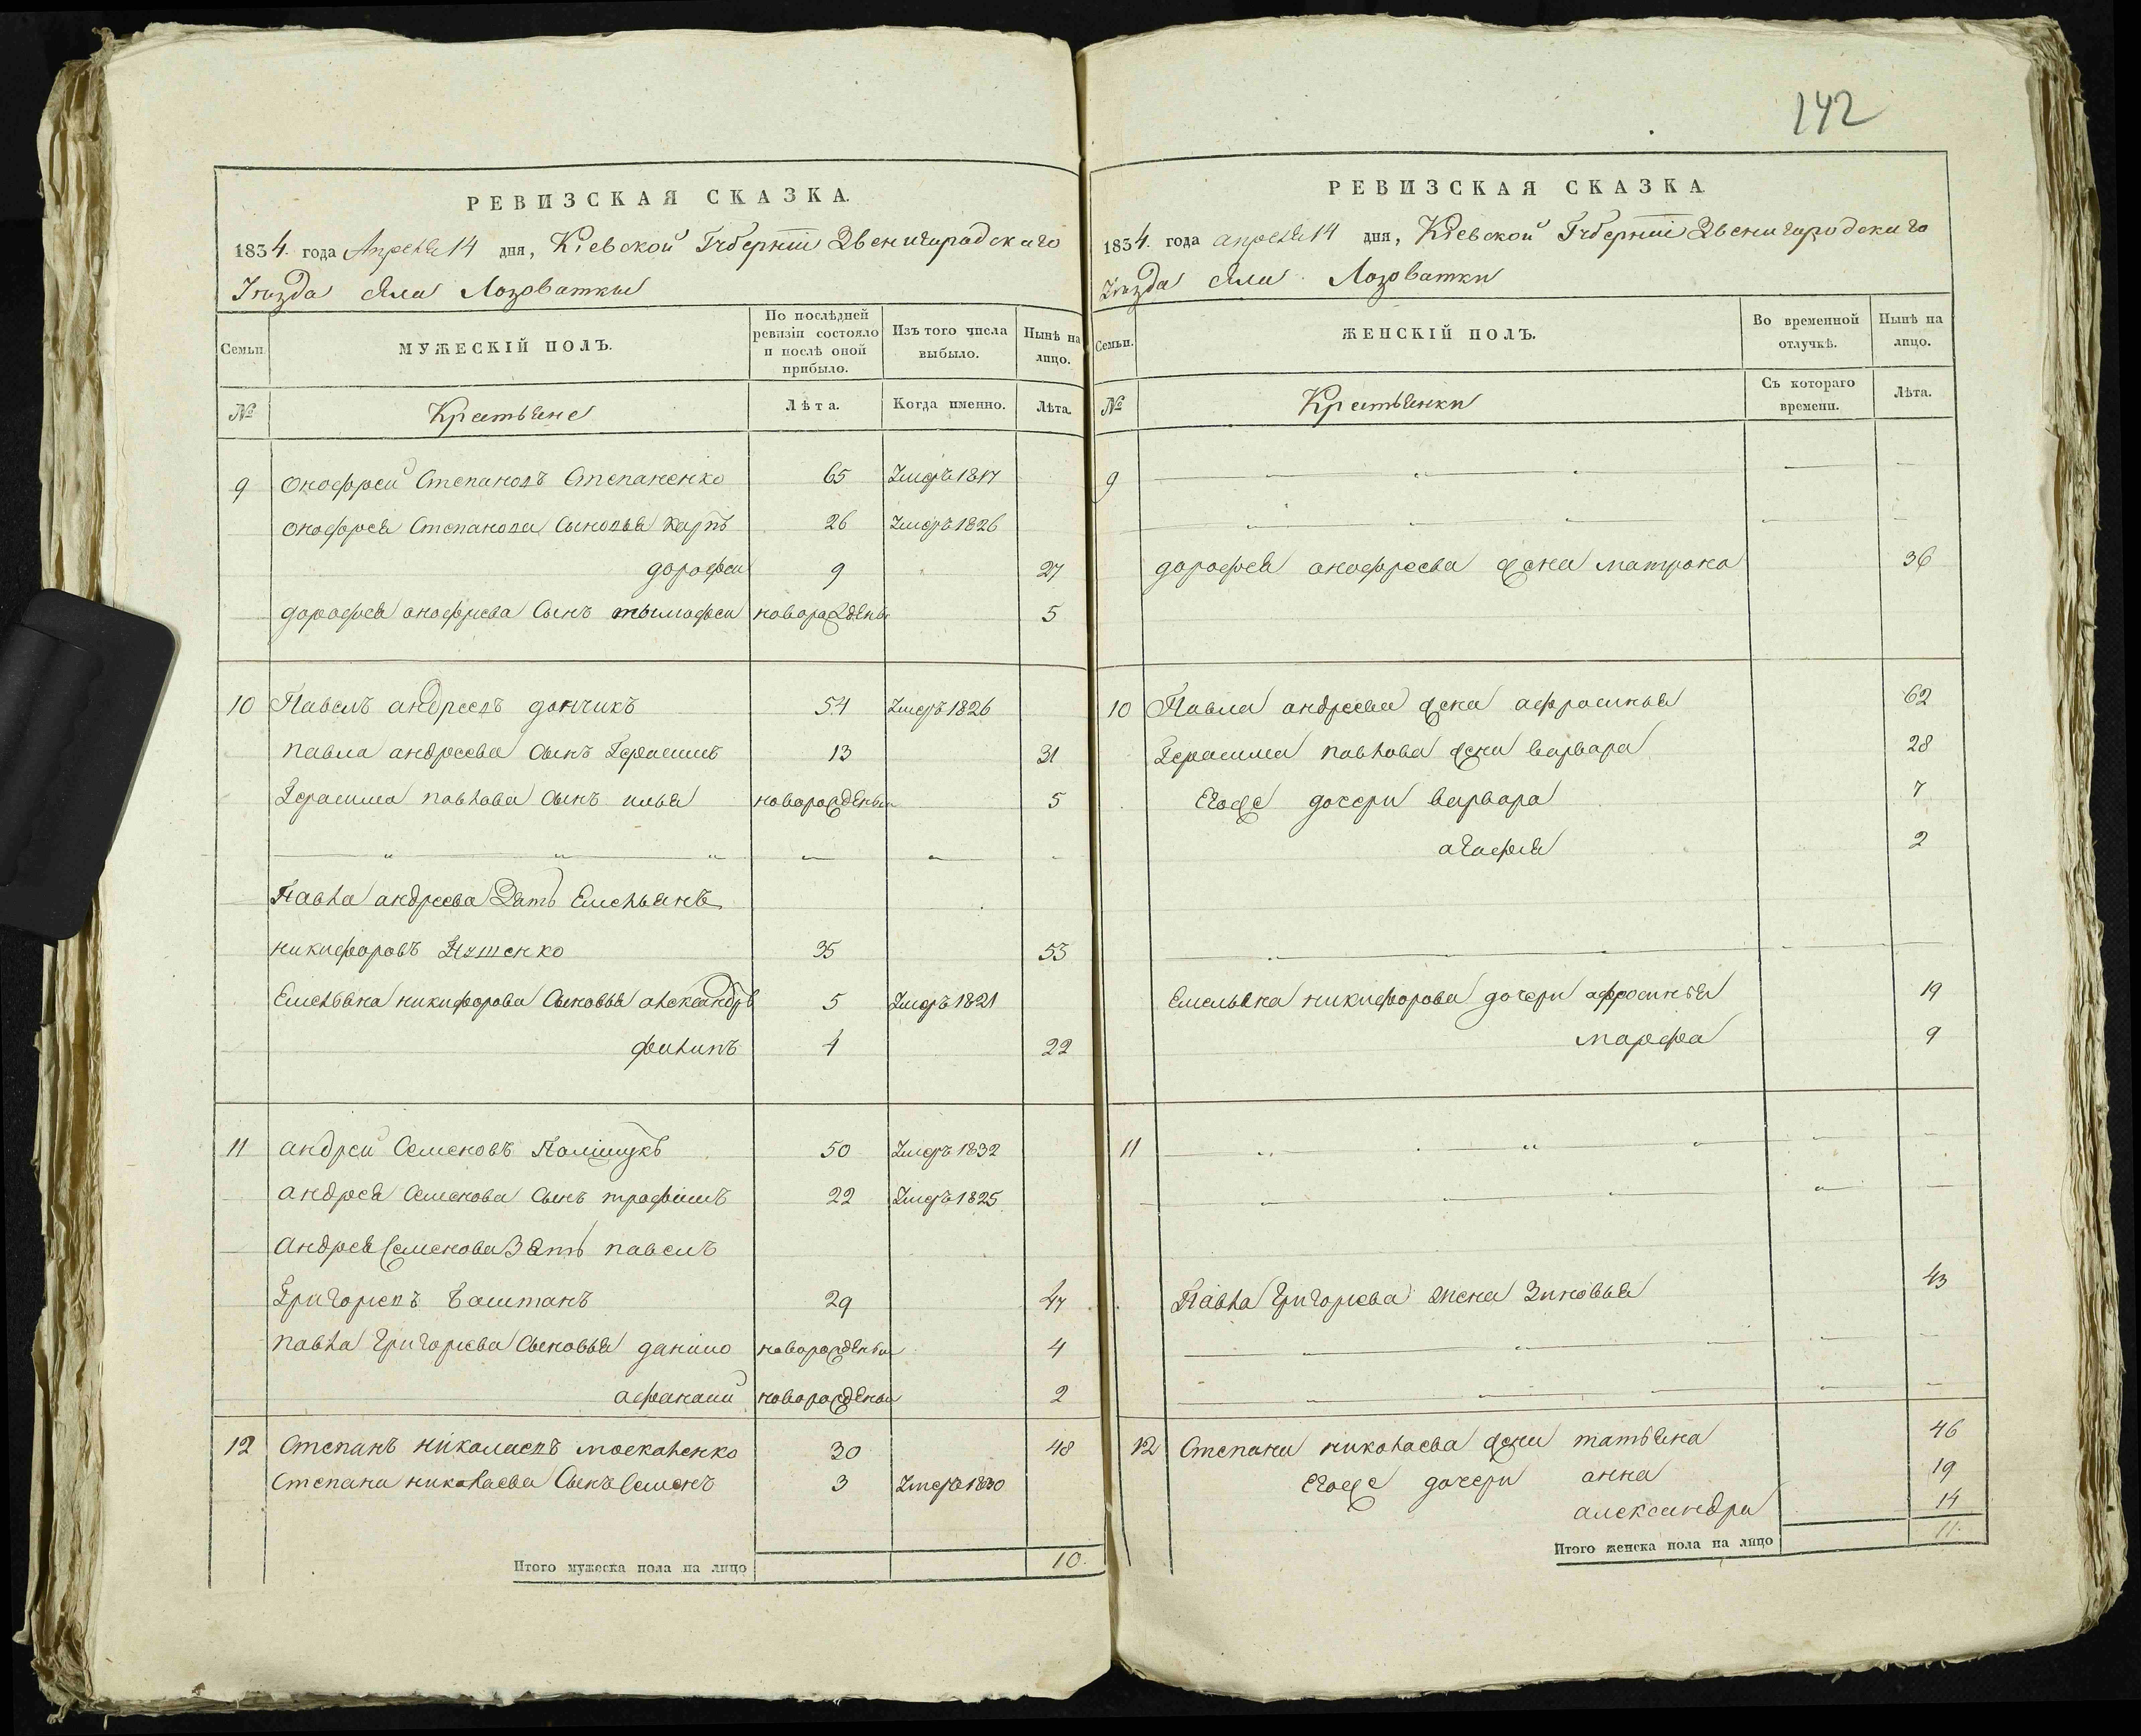 142
РЕВИЗСКАЯ СКАЗКА.
1834. года Апреля 14 дня, Кіевской Губерніи Звенигородскаго
Уезда Села Лозоватки
Семьи. МУЖЕСКІЙ ПОЛЪ. По послѣдней ревизіи состояло и послѣ оной прибыло. Изъ того числа выбыло. Нынѣ на лицо.
№ Крестьяне Лѣта. Когда именно. Лѣта.
9 Онофрей Степановъ Степаненко 65 Умеръ 1817
Онофрея Степанова Сыновья Карпъ 26 Умеръ 1826
дорофей 9 27
дорофея онофриева Сынъ тымофей новорожденый 5
10 Павелъ андреевъ дончикъ 54 Умеръ 1826
павла андреева Сынъ Герасимъ 13 31
Герасима павлова Сынъ илья новорожденый 5
Павла андреева Зять Емельянъ
никифоровъ 35 53
Емельяна никифорова Сыновья александръ 5 Умеръ 1821
филипъ 4 22
11 андрей Семеновъ Полищукъ 50 Умеръ 1832
андрея Семенова Сынъ трофимъ 22 Умеръ 1825
андрея Семенова Зять павелъ
Григориевъ Баштанъ 29 47
павла григориева Сыновья данило новорожденый 4
афанасий новорожденый 2
12 Степанъ николаевъ москаленко 30 48
Степана николаева Сынъ Семенъ 3 Умеръ 1830
Итого мужеска пола на лицо 10.
РЕВИЗСКАЯ СКАЗКА
1834. года апреля 14 дня, Кіевской Губерніи Звенигородскаго
Уезда Села Лозоватки
Семьи. ЖЕНСКІЙ ПОЛЪ. Во временной отлучкѣ. Нынѣ на лицо.
№ Крестьянки Съ котораго времени. Лѣта.
9
дорофея онофреева жена матрона 36
10 Павла андреева жена афросинья 62
Герасима павлова жена варвара 28
Егоже дочери варвара 7
агафия 2
Емельяна никифорова дочери афросинья 19
марфа 9
11
Павла григориева жена Зиновья 43
12 Степана николаева жена татьяна 46
Егоже дочери анна 19
александра 14
Итого женска пола на лицо 11.